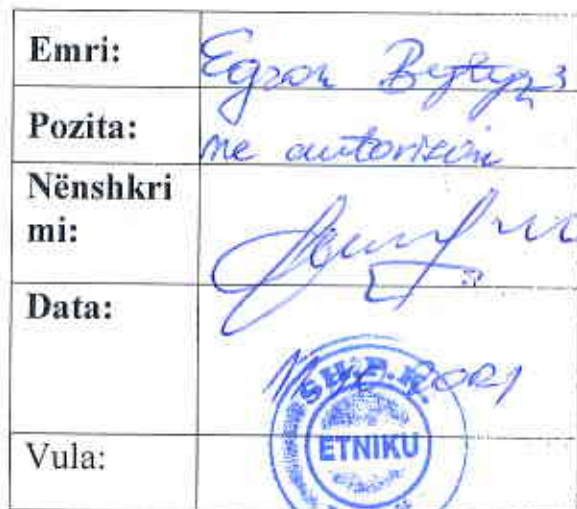 Emri: Egzon Bytyqi
Pozita: me autorizim
Nënshkri
mi:
Data: 2021
SH.P.K.
ETNIKU
Vula: